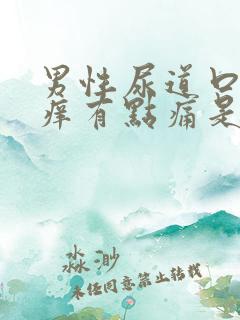 男性尿道口
痒有點痛是
淼渺
未经同意禁止转载